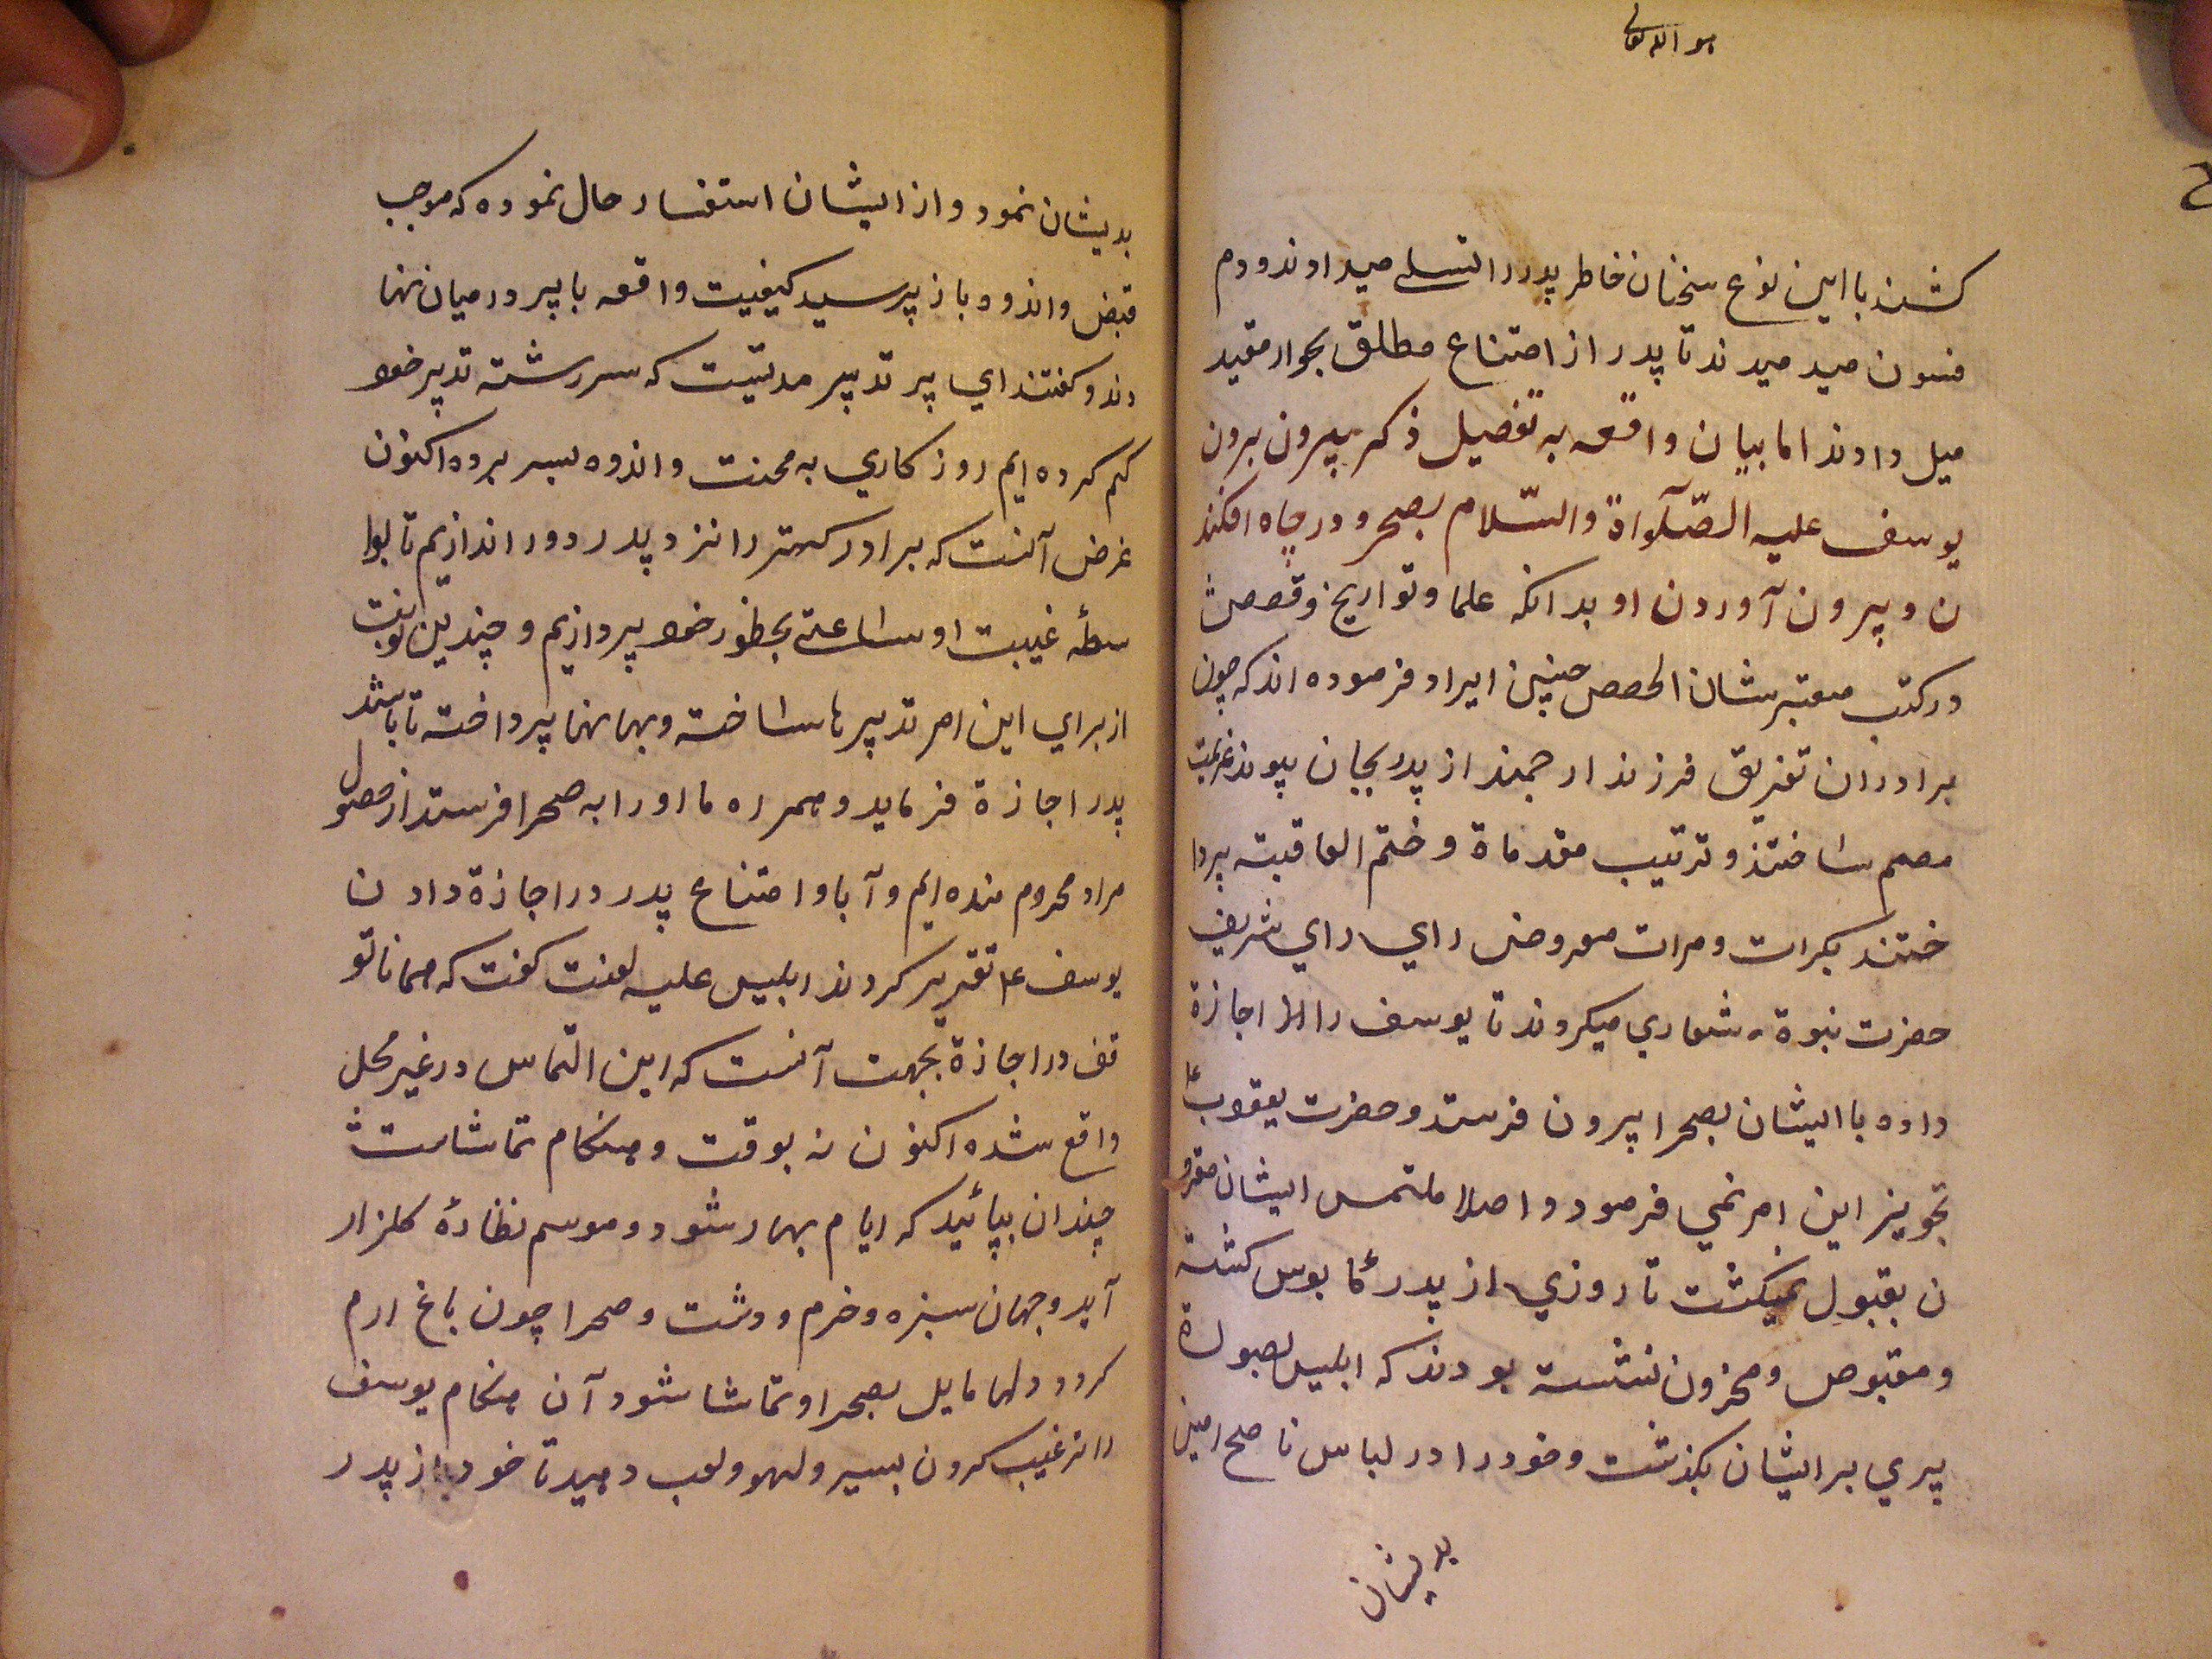 هو الله تعالى
كشند با اين نوع سخنان خاطر پدر را تسلے ميدادند و دم
فسون ميدميدند تا پدر از امتناع مطلق بجواز مقيد
ميل دادند اما بيان واقعه به تفصيل ذكر بيرون بردن
يوسف عليه الصّلواة والسّلام بصحرو در چاه افكند
ن و بيرون آوردن او بدانكه علما و تواريخ و قصص
در كتب معتبر شان الحصص چنين ايراد فرموده اند كه چون
برادران تفريق فرزند ارجمند از پدر بجان پيوند عزيمت
مصمم ساختند و ترتيب مقدماة و ختم العاقبته پردا
ختند بكرات و مرات معروض راي راي شريف
حضرت نبوة شعاري ميكردند تا يوسف را اجازة
داده با ايشان بصحرا بيرون فرستد و حضرت يعقوب ع
تجويز اين امر نمي فرمود و اصلا ملتمس ايشان مقرو
ن بقبول نميكشت تا روزي از پدر مايوس كشته
و مقبوض و محزون نشسته بودند كه ابليس بصورة
پيري بر ايشان بكذشت و خود را در لباس ناصح امين
بديشان
بديشان نمود و از ايشان استفسار حال نموده كه موجب
قبض و اندوه باز پرسيد كيفيت واقعه با پير در ميان نها
دند و كفتند اي پير تدبير مدتيست كه سر رشته تدبير خود
كم كرده ايم روز كاري به محنت و اندوه بسر برده اكنون
غرض آنست كه برادر كهتر را نزد پدر دور اندازيم تا بوا
سطهٔ غيبت او ساعتے بحظور خود پردازيم و چندين نوبت
از براي اين امر تدبيرها ساخته و بهانها پرداخته تا باشد
پدر اجازة فرمايد و همراه ما او را به صحرا فرستد از حصول
مراد محروم منده ايم و آبا و امتناع پدر در اجازة دادن
يوسف ع تقرير كردند ابليس عليه لعنت كفت كه همانا تو
قف در اجازة بجهت آنست كه اين التماس در غير محل
واقع شده اكنون نه بوقت و هنكام تماشاست
چندان بپائيد كه ايام بهار شود و موسم نظارهٔ كلزار
آيد و جهان سبزه و خرم و دشت و صحرا چون باغ ارم
كردد و دلها مايل بصحرا و تماشا شود آن هنكام يوسف
را ترغيب كردن بسير و لهو و لعب دهيد تا خود از پدر